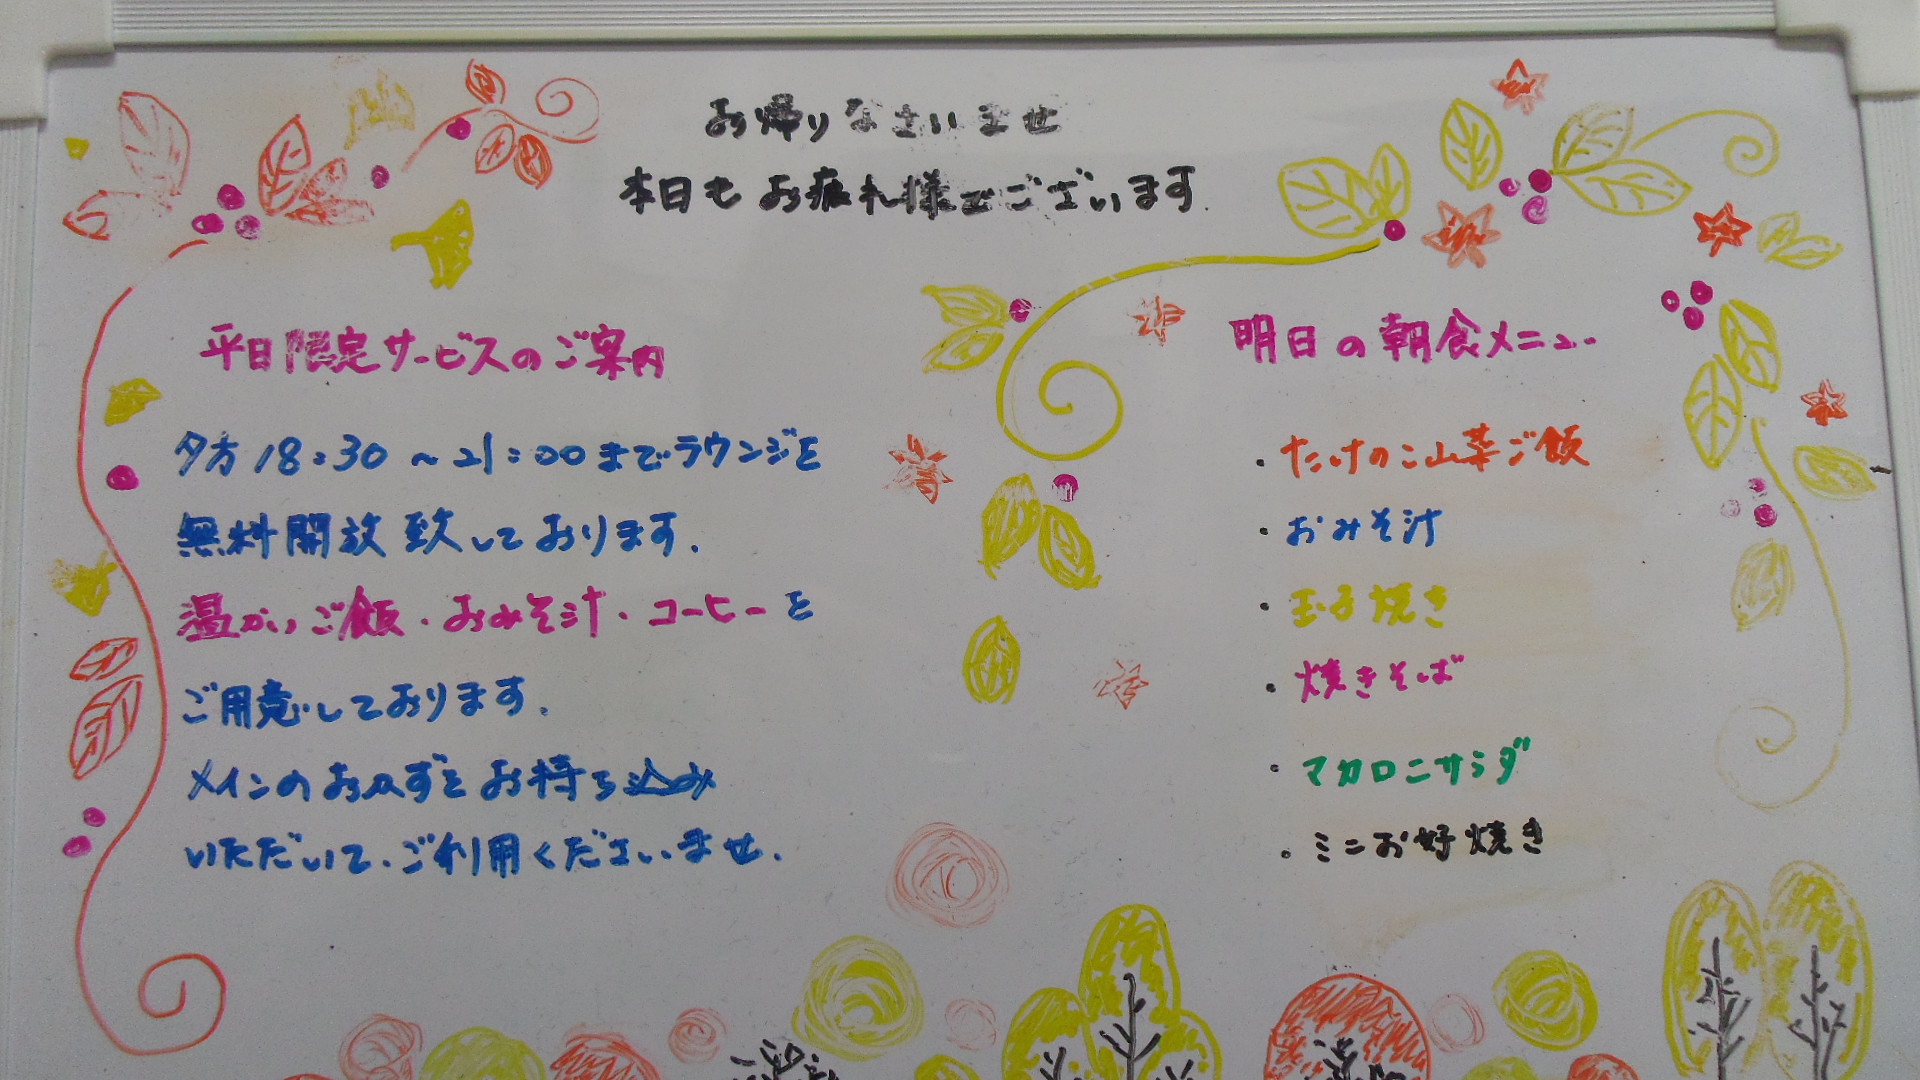 お帰りなさいませ
本日もお疲れ様でございます
平日限定サービスのご案内
夕方18:30～21:00までラウンジを
無料開放致しております。
温かいご飯・おみそ汁・コーヒーを
ご用意しております。
メインのおかずをお持ち込み
いただいて、ご利用くださいませ。
明日の朝食メニュー
・たけのこ山菜ご飯
・おみそ汁
・玉子焼き
・焼きそば
・マカロニサラダ
・ミニお好焼き